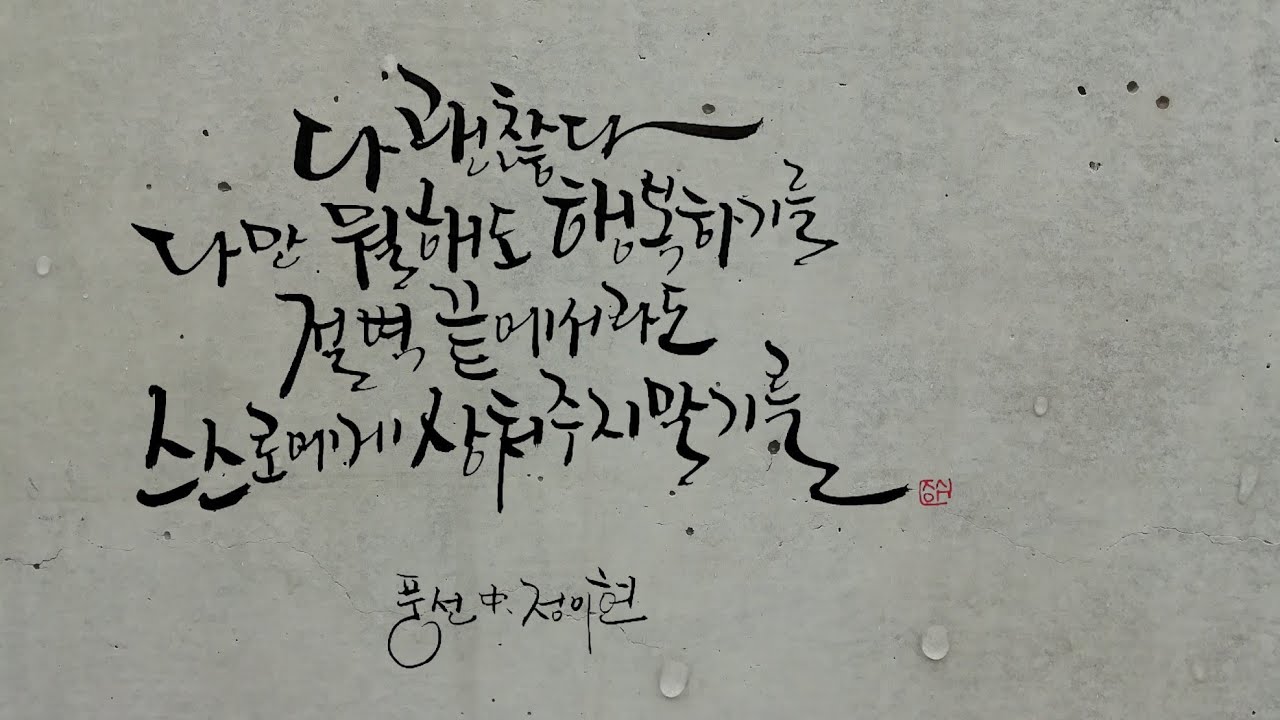 다 괜찮다
다만 뭘해도 행복하기를
절벽 끝에서라도
스스로에게 상처주지 말기를
풍선 中. 정아현